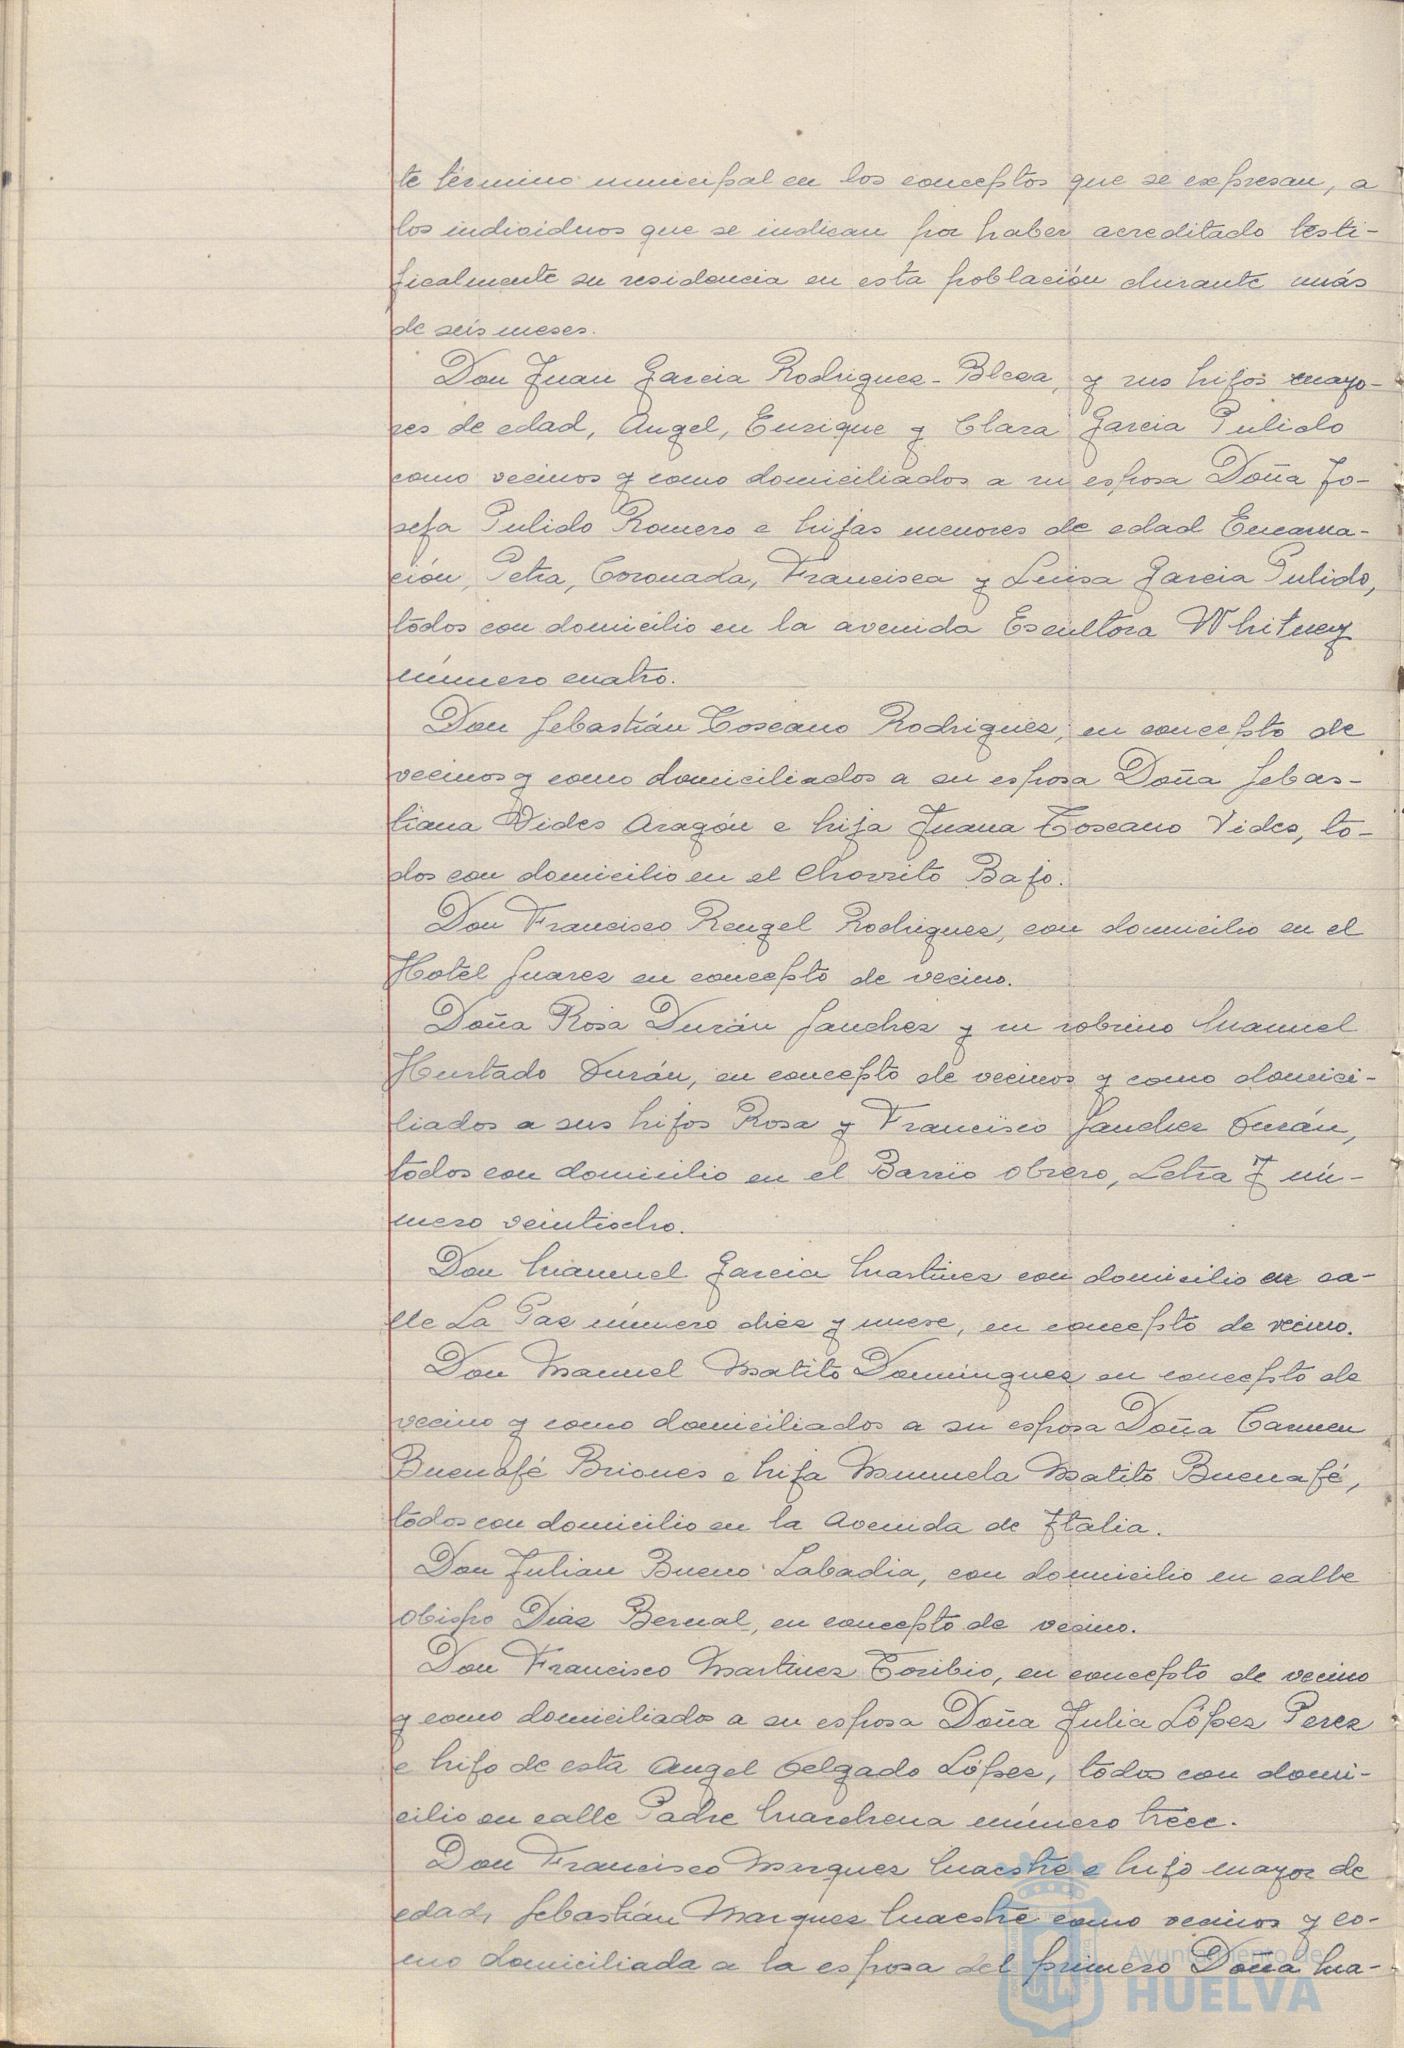 te término municipal en los conceptos que se expresan, a
los individuos que se indican por haber acreditado testi-
ficalmente su residencia en esta población durante más
de seis meses.
Don Juan Garcia Rodriguez-Blesa, y sus hijos mayo-
res de edad, Angel, Enrique y Clara Garcia Pulido
como vecinos y como domiciliados a su esposa Doña Jo-
sefa Pulido Romero e hijas menores de edad Encarna-
ción, Petra, Coronada, Francisca y Luisa Garcia Pulido,
todos con domicilio en la avenida Escultora Whitney
número cuatro.
Don Sebastián Toscano Rodriguez, en concepto de
vecinos y como domiciliados a su esposa Doña Sebas-
tiana Vides Aragón e hija Juana Toscano Vides, to-
dos con domicilio en el Chorrito Bajo.
Don Francisco Rengel Rodriguez, con domicilio en el
Hotel Suarez en concepto de vecino.
Doña Rosa Durán Sanchez y su sobrino Manuel
Hurtado Durán, en concepto de vecinos y como domici-
liados a sus hijos Rosa y Francisco Sanchez Durán,
todos con domicilio en el Barrio obrero, Letra J nú-
mero veintiocho.
Don Manuel Garcia Martinez con domicilio en ca-
lle La Paz número diez y nueve, en concepto de vecino.
Don Manuel Matito Dominguez en concepto de
vecino y como domiciliados a su esposa Doña Carmen
Buenafé Briones e hija Manuela Matito Buenafé,
todos con domicilio en la Avenida de Italia.
Don Julian Bueno Labadia, con domicilio en calle
obispo Diaz Bernal, en concepto de vecino.
Don Francisco Martinez Toribio, en concepto de vecino
y como domiciliados a su esposa Doña Julia López Perez
e hijo de esta Angel Delgado López, todos con domi-
cilio en calle Padre Marchena número trece.
Don Francisco Marquez Maestre e hijo mayor de
edad, Sebastián Marquez Maestre como vecinos y co-
mo domiciliada a la esposa del primero Doña Ma-
Ayuntamiento de
HUELVA